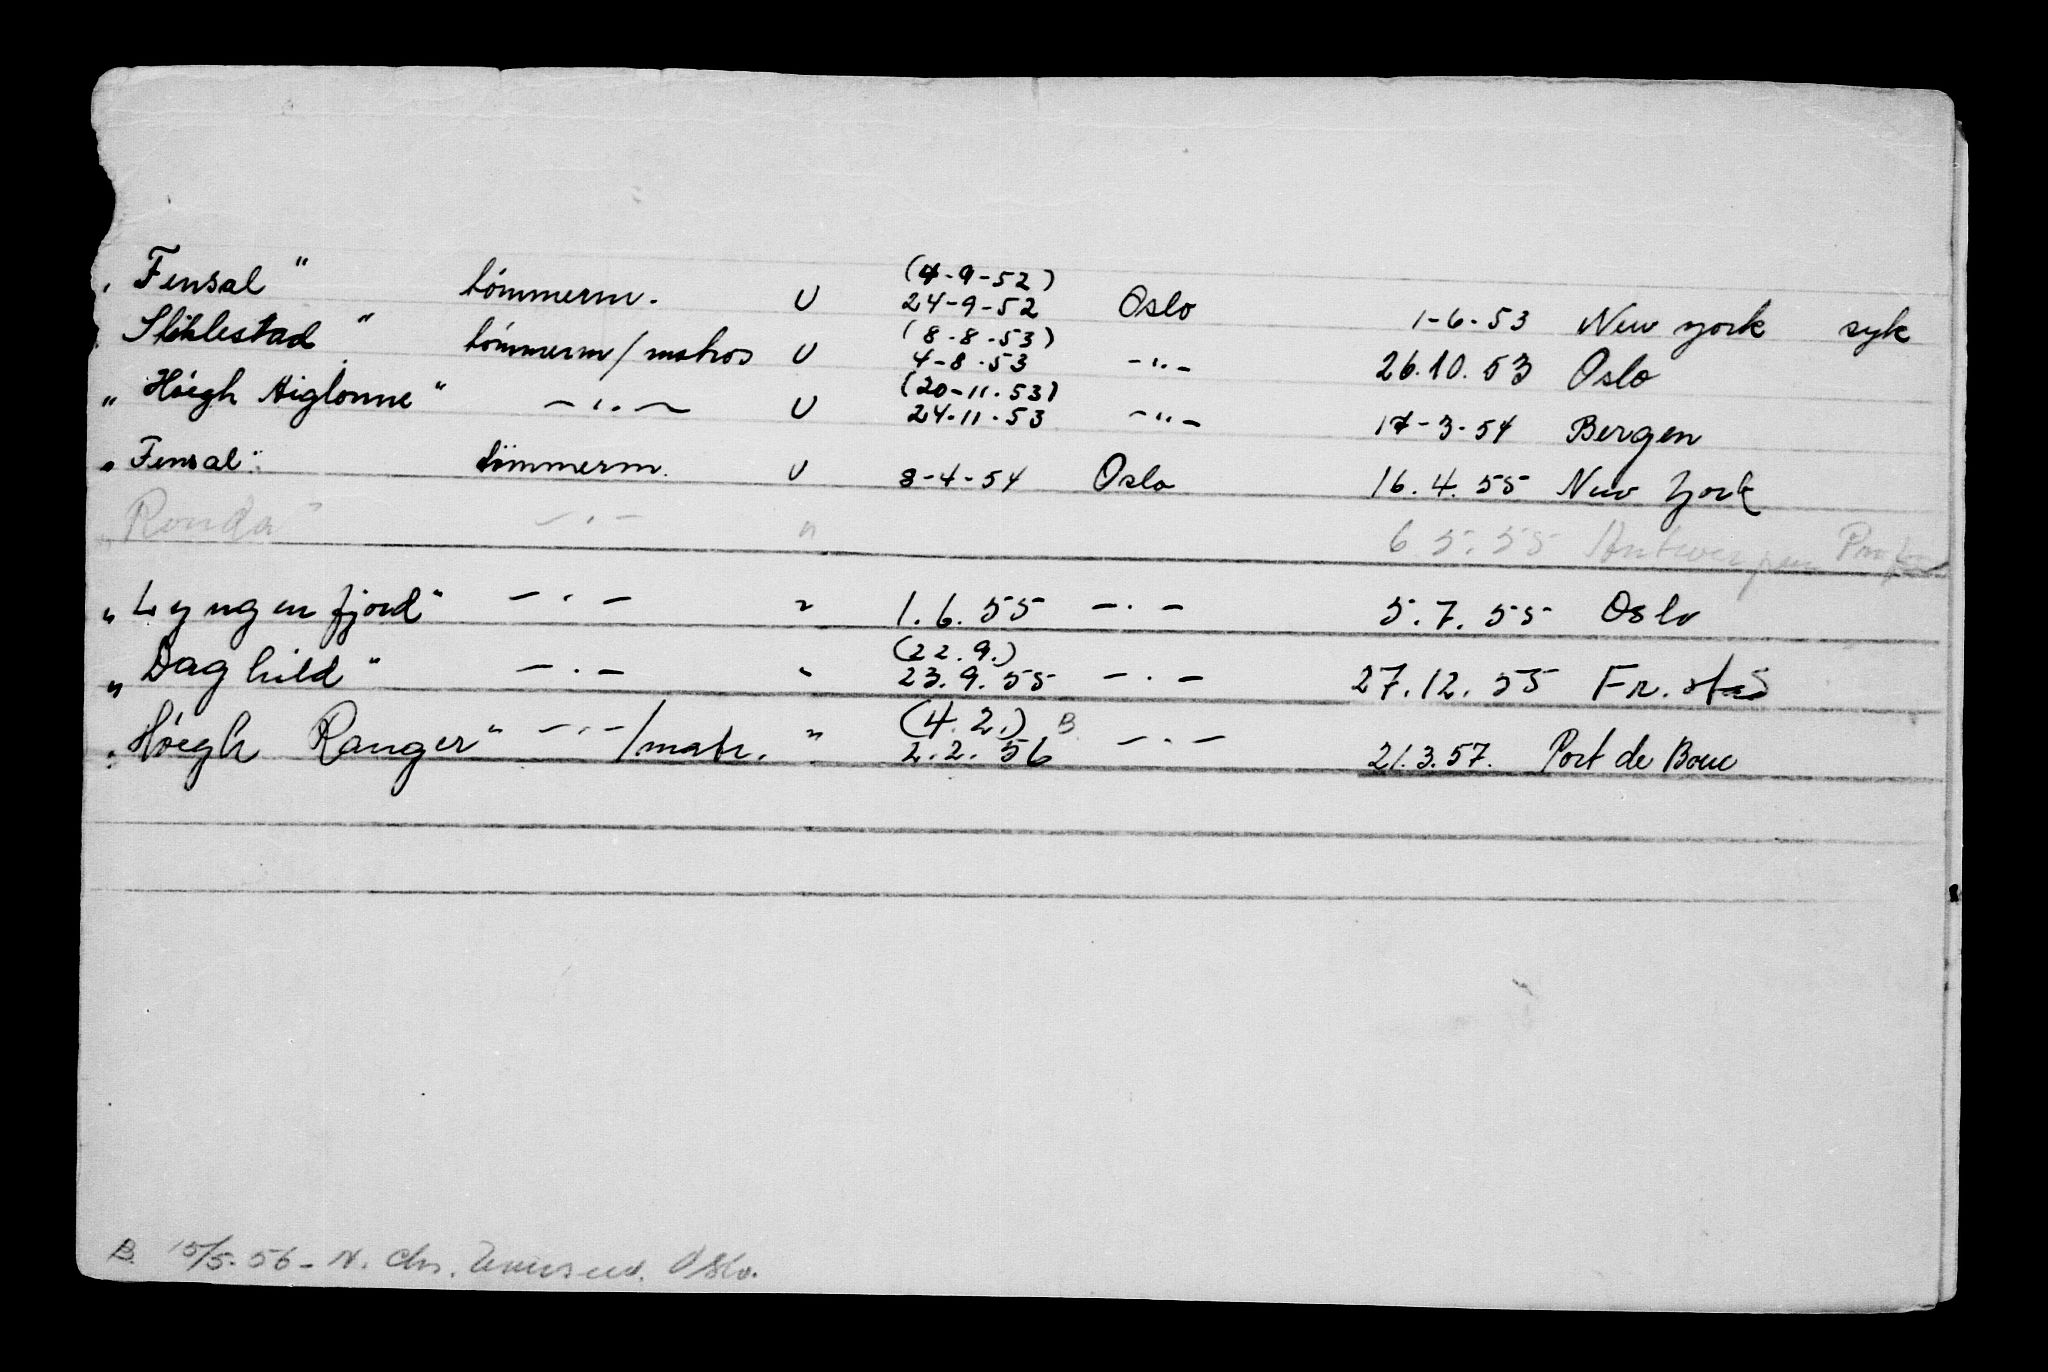 „ Fensal " tømmerm. U (4-9-52) 24-9-52 Oslo 1-6-53 New york syk
„ Stiklestad " tømmerm/matros U (8-8-53) 4-8-53 -"- 26.10.53 Oslo
„ Höegh Aiglonne " -"- U (20-11.53) 24-11-53 -"- 17-3-54 Bergen
„ Fensal " tømmerm. U 8-4-54 Oslo 16.4.55 New York
„ Ronda " -"- " 6.5.55 Antwerpen
„ Lyngenfjord " -"- " 1.6.55 -"- 5.7.55 Oslo
„ Daghild " -"- " (22.9.) 23.9.55 -"- 27.12.55 Fr.stad
„ Höegh Ranger " -"-/matr. " (4.2.) 2.2.56 B. -"- 21.3.57. Port de Bouc
B. 15/5-56- N. Chr. Oslo.